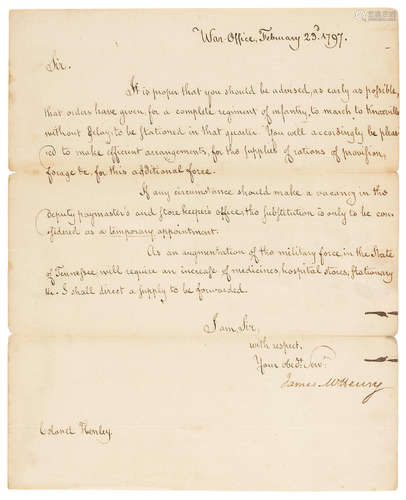 War Office, February 23d. 1797.
Sir.
It is proper that you should be advised, as early as possible,
that orders have given for a complete regiment of infantry, to march to Knoxville
without delay, to be stationed in that quarter. You will accordingly be pleas
ed to make efficient arrangements, for the supplies of rations of provision,
forage &c. for this additional force.
If any circumstance should make a vacancy in the
deputy paymaster's and store keepers office, the substitution is only to be con-
sidered as a temporary appointment.
As an augmentation of the military force in the State
of Tennessee will require an increase of medicines, hospital stores, stationary
&c. I shall direct a supply to be forwarded.
I am Sir,
with respect,
Your obed. Serv.
James McHenry
Colonel Henley